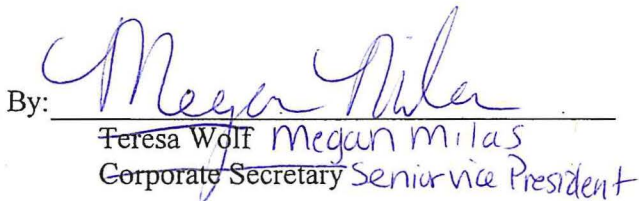 By: Megan Milas
Teresa Wolf Megan Milas
Corporate Secretary Senior vice President